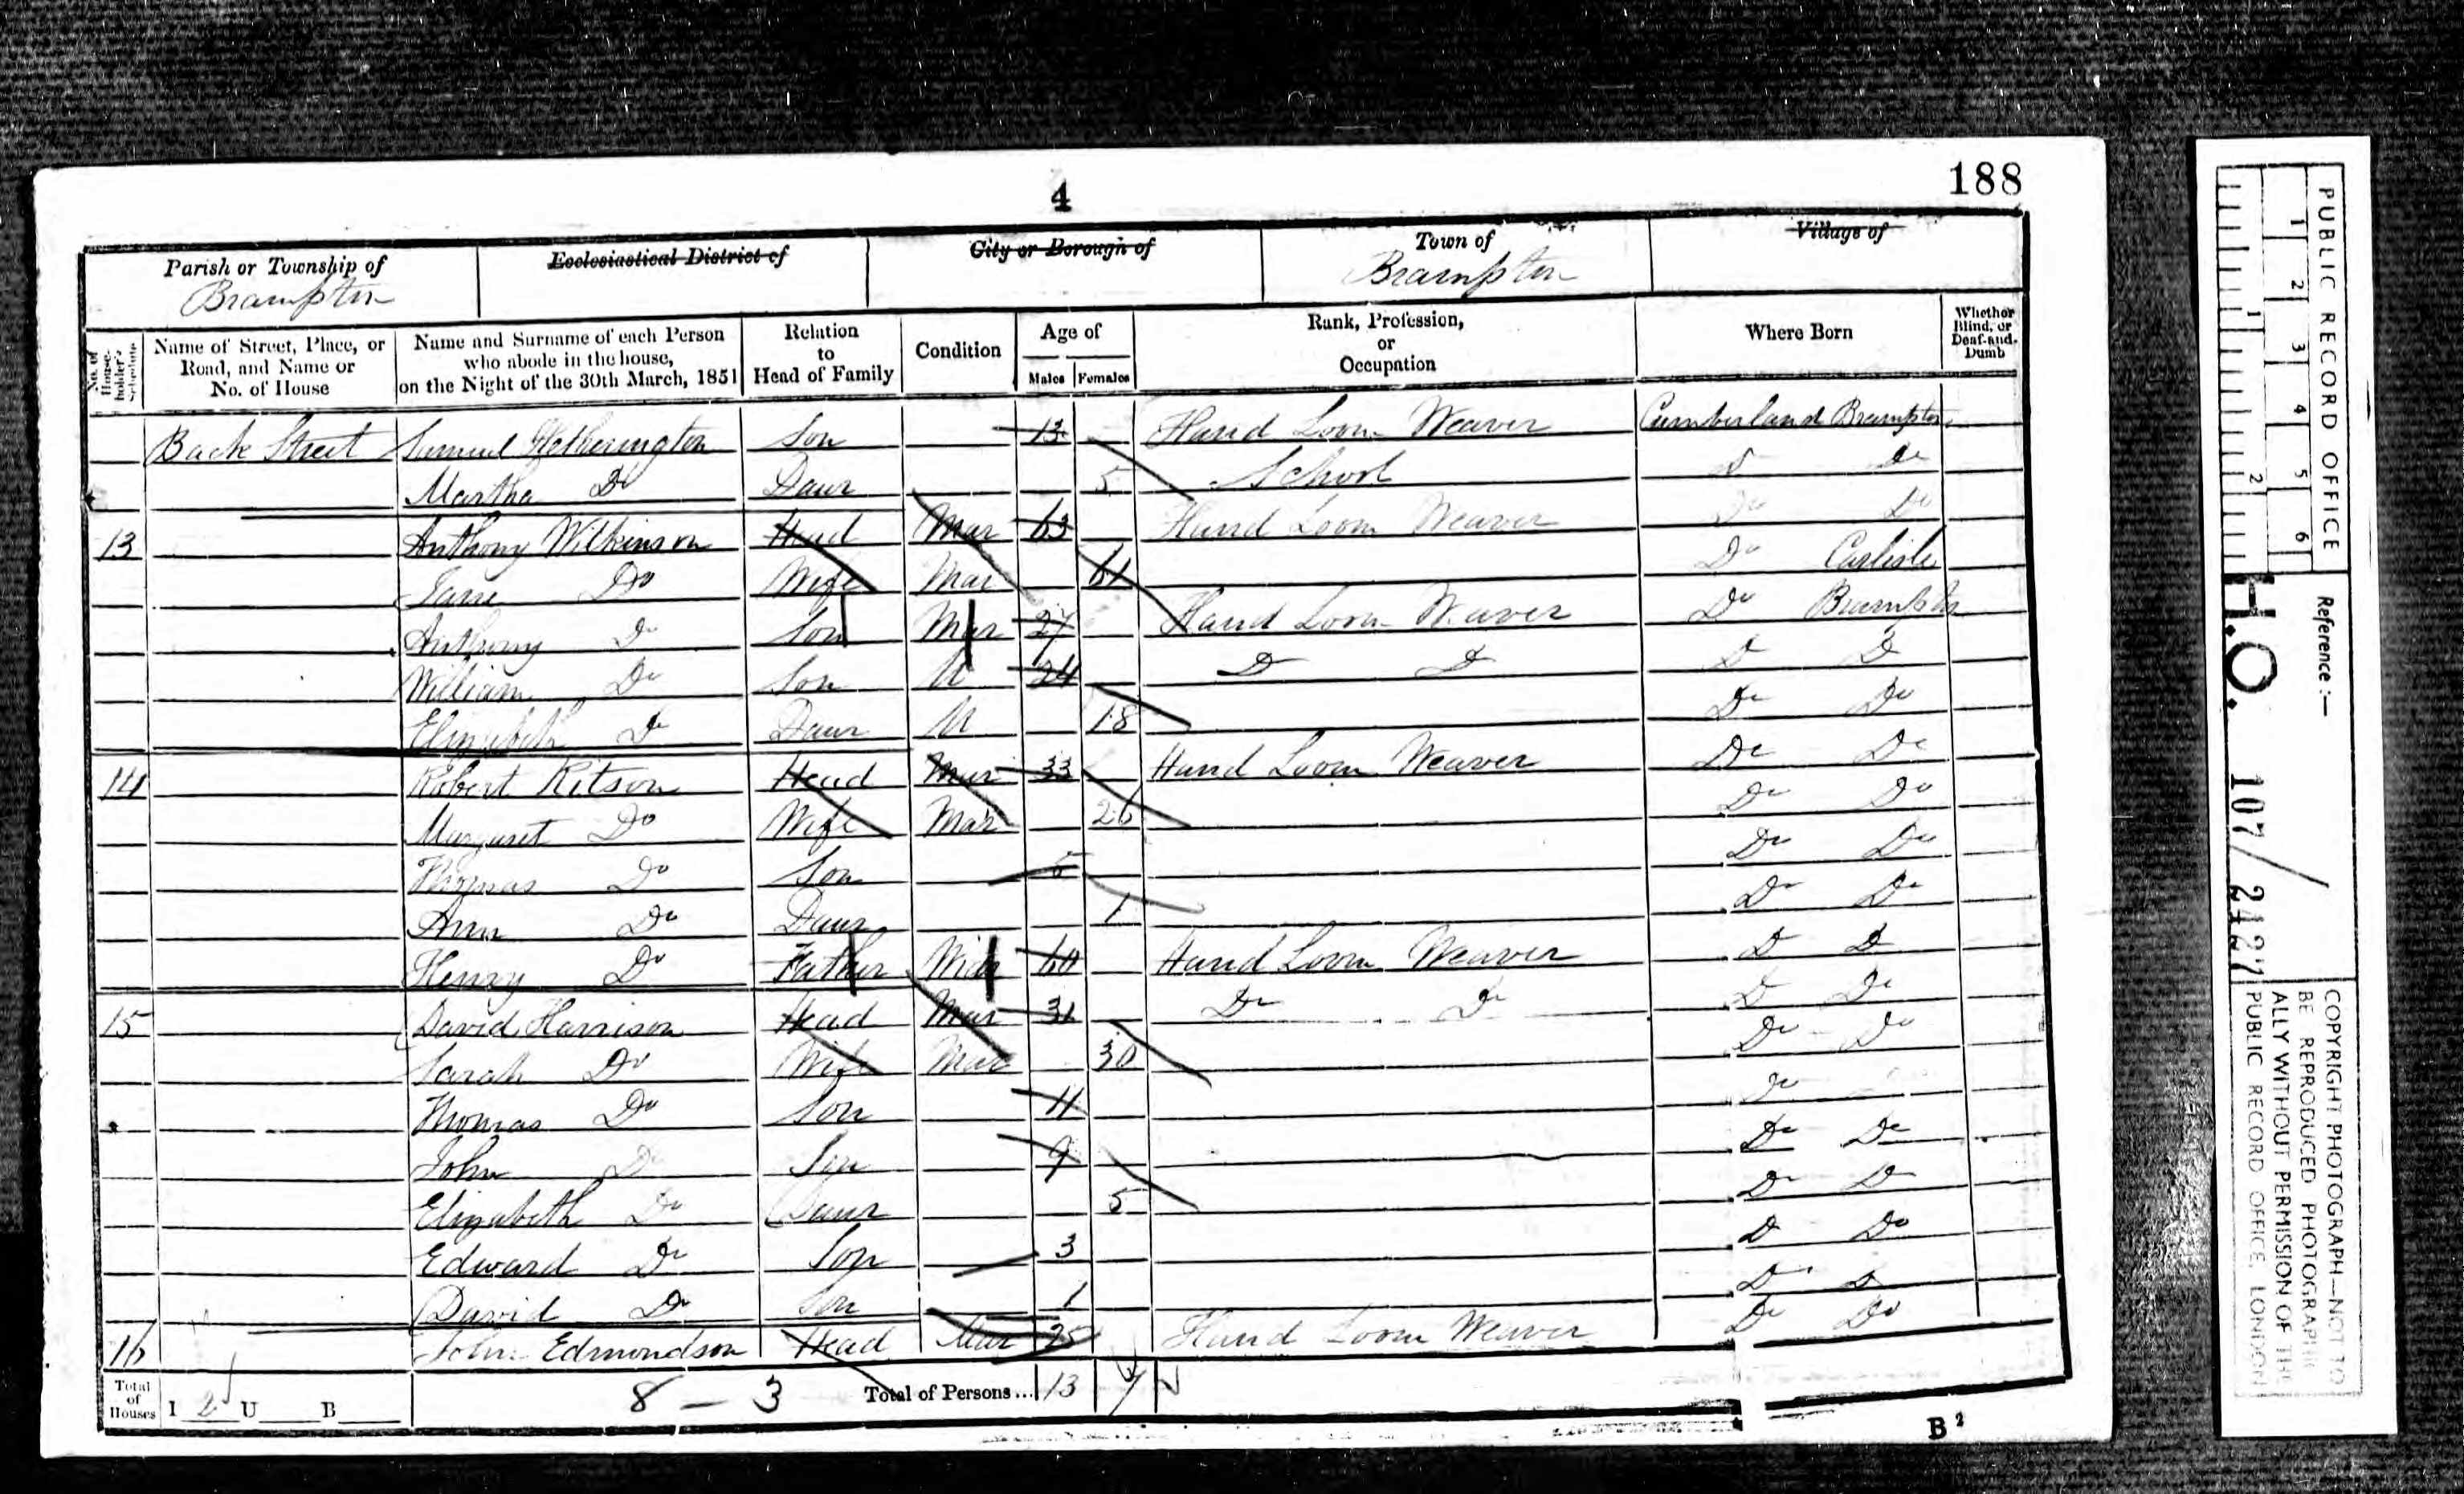 4
188
Parish or Township of
Brampton
Ecclesiastical District of
City or Borough of
Town of
Brampton
Village of
No. of House-holder's Schedule
Name of Street, Place, or Road, and Name or No. of House
Name and Surname of each Person who abode in the house, on the Night of the 30th March, 1851
Relation to Head of Family
Condition
Age of
Males
Females
Rank, Profession, or Occupation
Where Born
Whether Blind, or Deaf-and-Dumb
Back Street Samuel Hetherington Son 13 Hand Loom Weaver Cumberland Brampton
Martha Do Daur 5 School Do Do
13 Anthony Wilkinson Head Mar 63 Hand Loom Weaver Do Do
Jane Do Wife Mar 61 Do Carlisle
Anthony Do Son Mar 27 Hand Loom Weaver Do Brampton
William Do Son U 24 Do Do Do Do
Elizabeth Do Daur U 18 Do Do
14 Robert Ritson Head Mar 33 Hand Loom Weaver Do Do
Margaret Do Wife Mar 26 Do Do
Thomas Do Son 5 Do Do
Ann Do Daur 1 Do Do
Henry Do Father Widr 60 Hand Loom Weaver Do Do
15 David Harrison Head Mar 31 Do Do Do Do
Sarah Do Wife Mar 30 Do Do
Thomas Do Son 11 Do
John Do Son 9 Do Do
Elizabeth Do Daur 5 Do Do
Edward Do Son 3 Do Do
David Do Son 1 Do Do
16 John Edmondson Head Mar 25 Hand Loom Weaver Do Do
Total of Houses I 2 U B 8 - 3 Total of Persons... 13 7
B2
PUBLIC RECORD OFFICE
1 2 3 4 5 6
1 2
Reference :-
H.O. 107 / 2427
COPYRIGHT PHOTOGRAPH—NOT TO
BE REPRODUCED PHOTOGRAPHIC
ALLY WITHOUT PERMISSION OF THE
PUBLIC RECORD OFFICE, LONDON